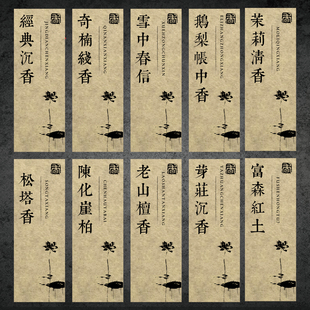 經典沉香
JINGDIANCHENXIANG
奇楠綫香
QINANXIANXIANG
雪中春信
XUEZHONGCHUNXIN
鵝梨帳中香
ELIZHANGZHONGXIANG
茉莉清香
MOLIQINGXIANG
松塔香
SONGTAXIANG
陳化崖柏
CHENHUAYABAI
老山檀香
LAOSHANTANXIANG
芽莊沉香
YAZHUANGCHENXIANG
富森紅土
FUSENHONGTU